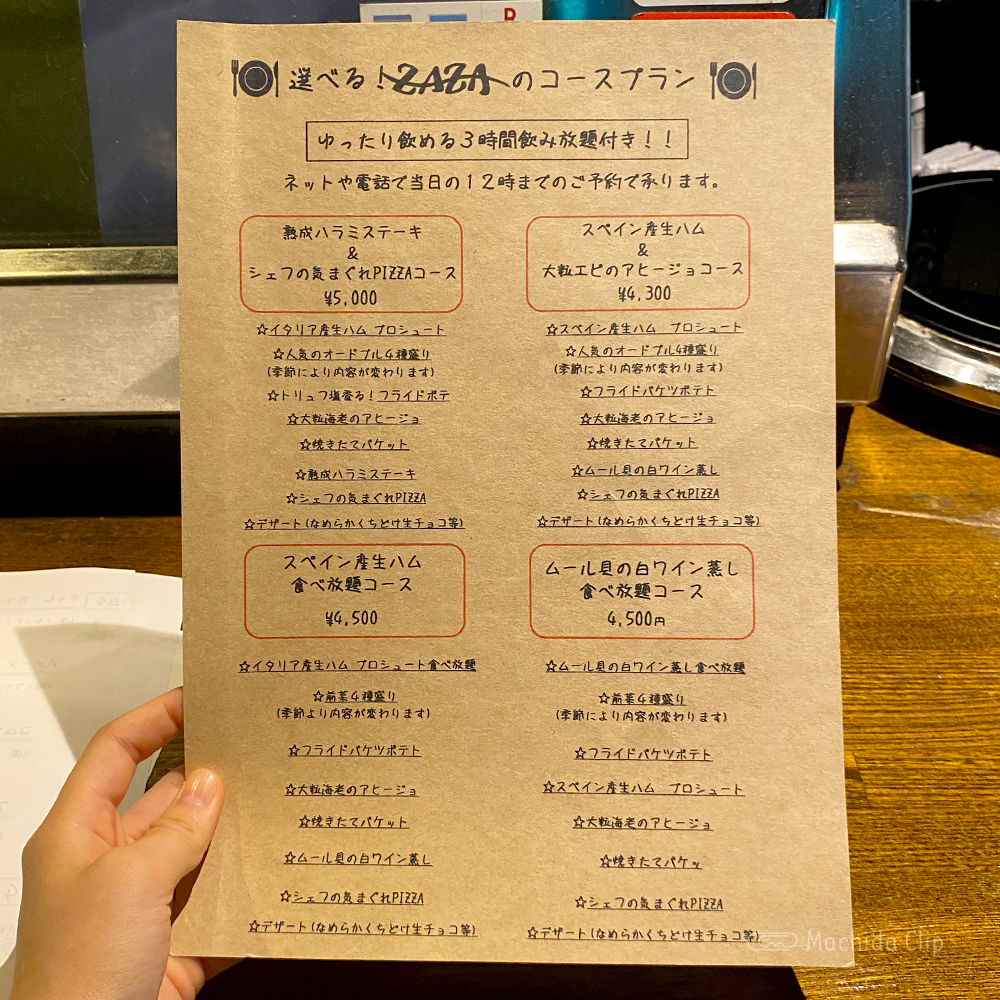 R
選べる！ZAZAのコースプラン
ゆったり飲める３時間飲み放題付き！！
ネットや電話で当日の１２時までのご予約で承ります。
熟成ハラミステーキ
&
シェフの気まぐれPIZZAコース
¥5,000
☆イタリア産生ハム プロシュート
☆人気のオードブル４種盛り
(季節により内容が変わります)
☆トリュフ塩香る！フライドポテ
☆大粒海老のアヒージョ
☆焼きたてバケット
☆熟成ハラミステーキ
☆シェフの気まぐれPIZZA
☆デザート(なめらかくちどけ生チョコ等)
スペイン産生ハム
&
大粒エビのアヒージョコース
¥4,300
☆スペイン産生ハム　プロシュート
☆人気のオードブル4種盛り
(季節により内容が変わります)
☆フライドバケツポテト
☆大粒海老のアヒージョ
☆焼きたてバケット
☆ムール貝の白ワイン蒸し
☆シェフの気まぐれPIZZA
☆デザート(なめらかくちどけ生チョコ等)
スペイン産生ハム
食べ放題コース
¥4,500
☆イタリア産生ハム プロシュート食べ放題
☆前菜４種盛り
(季節より内容が変わります)
☆フライドバケツポテト
☆大粒海老のアヒージョ
☆焼きたてバケット
☆ムール貝の白ワイン蒸し
☆シェフの気まぐれPIZZA
☆デザート(なめらかくちどけ生チョコ等)
ムール貝の白ワイン蒸し
食べ放題コース
4,500円
☆ムール貝の白ワイン蒸し食べ放題
☆前菜４種盛り
(季節により内容が変わります)
☆フライドバケツポテト
☆スペイン産生ハム　プロシュート
☆大粒海老のアヒージョ
☆焼きたてバケッ
☆シェフの気まぐれPIZZA
☆デザート(なめらかくちどけ生チョコ等)
Machida Clip